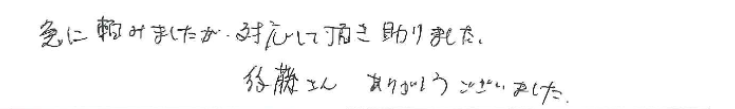 急に頼みましたが、対応して頂き助りました。
後藤さん ありがとうございました。